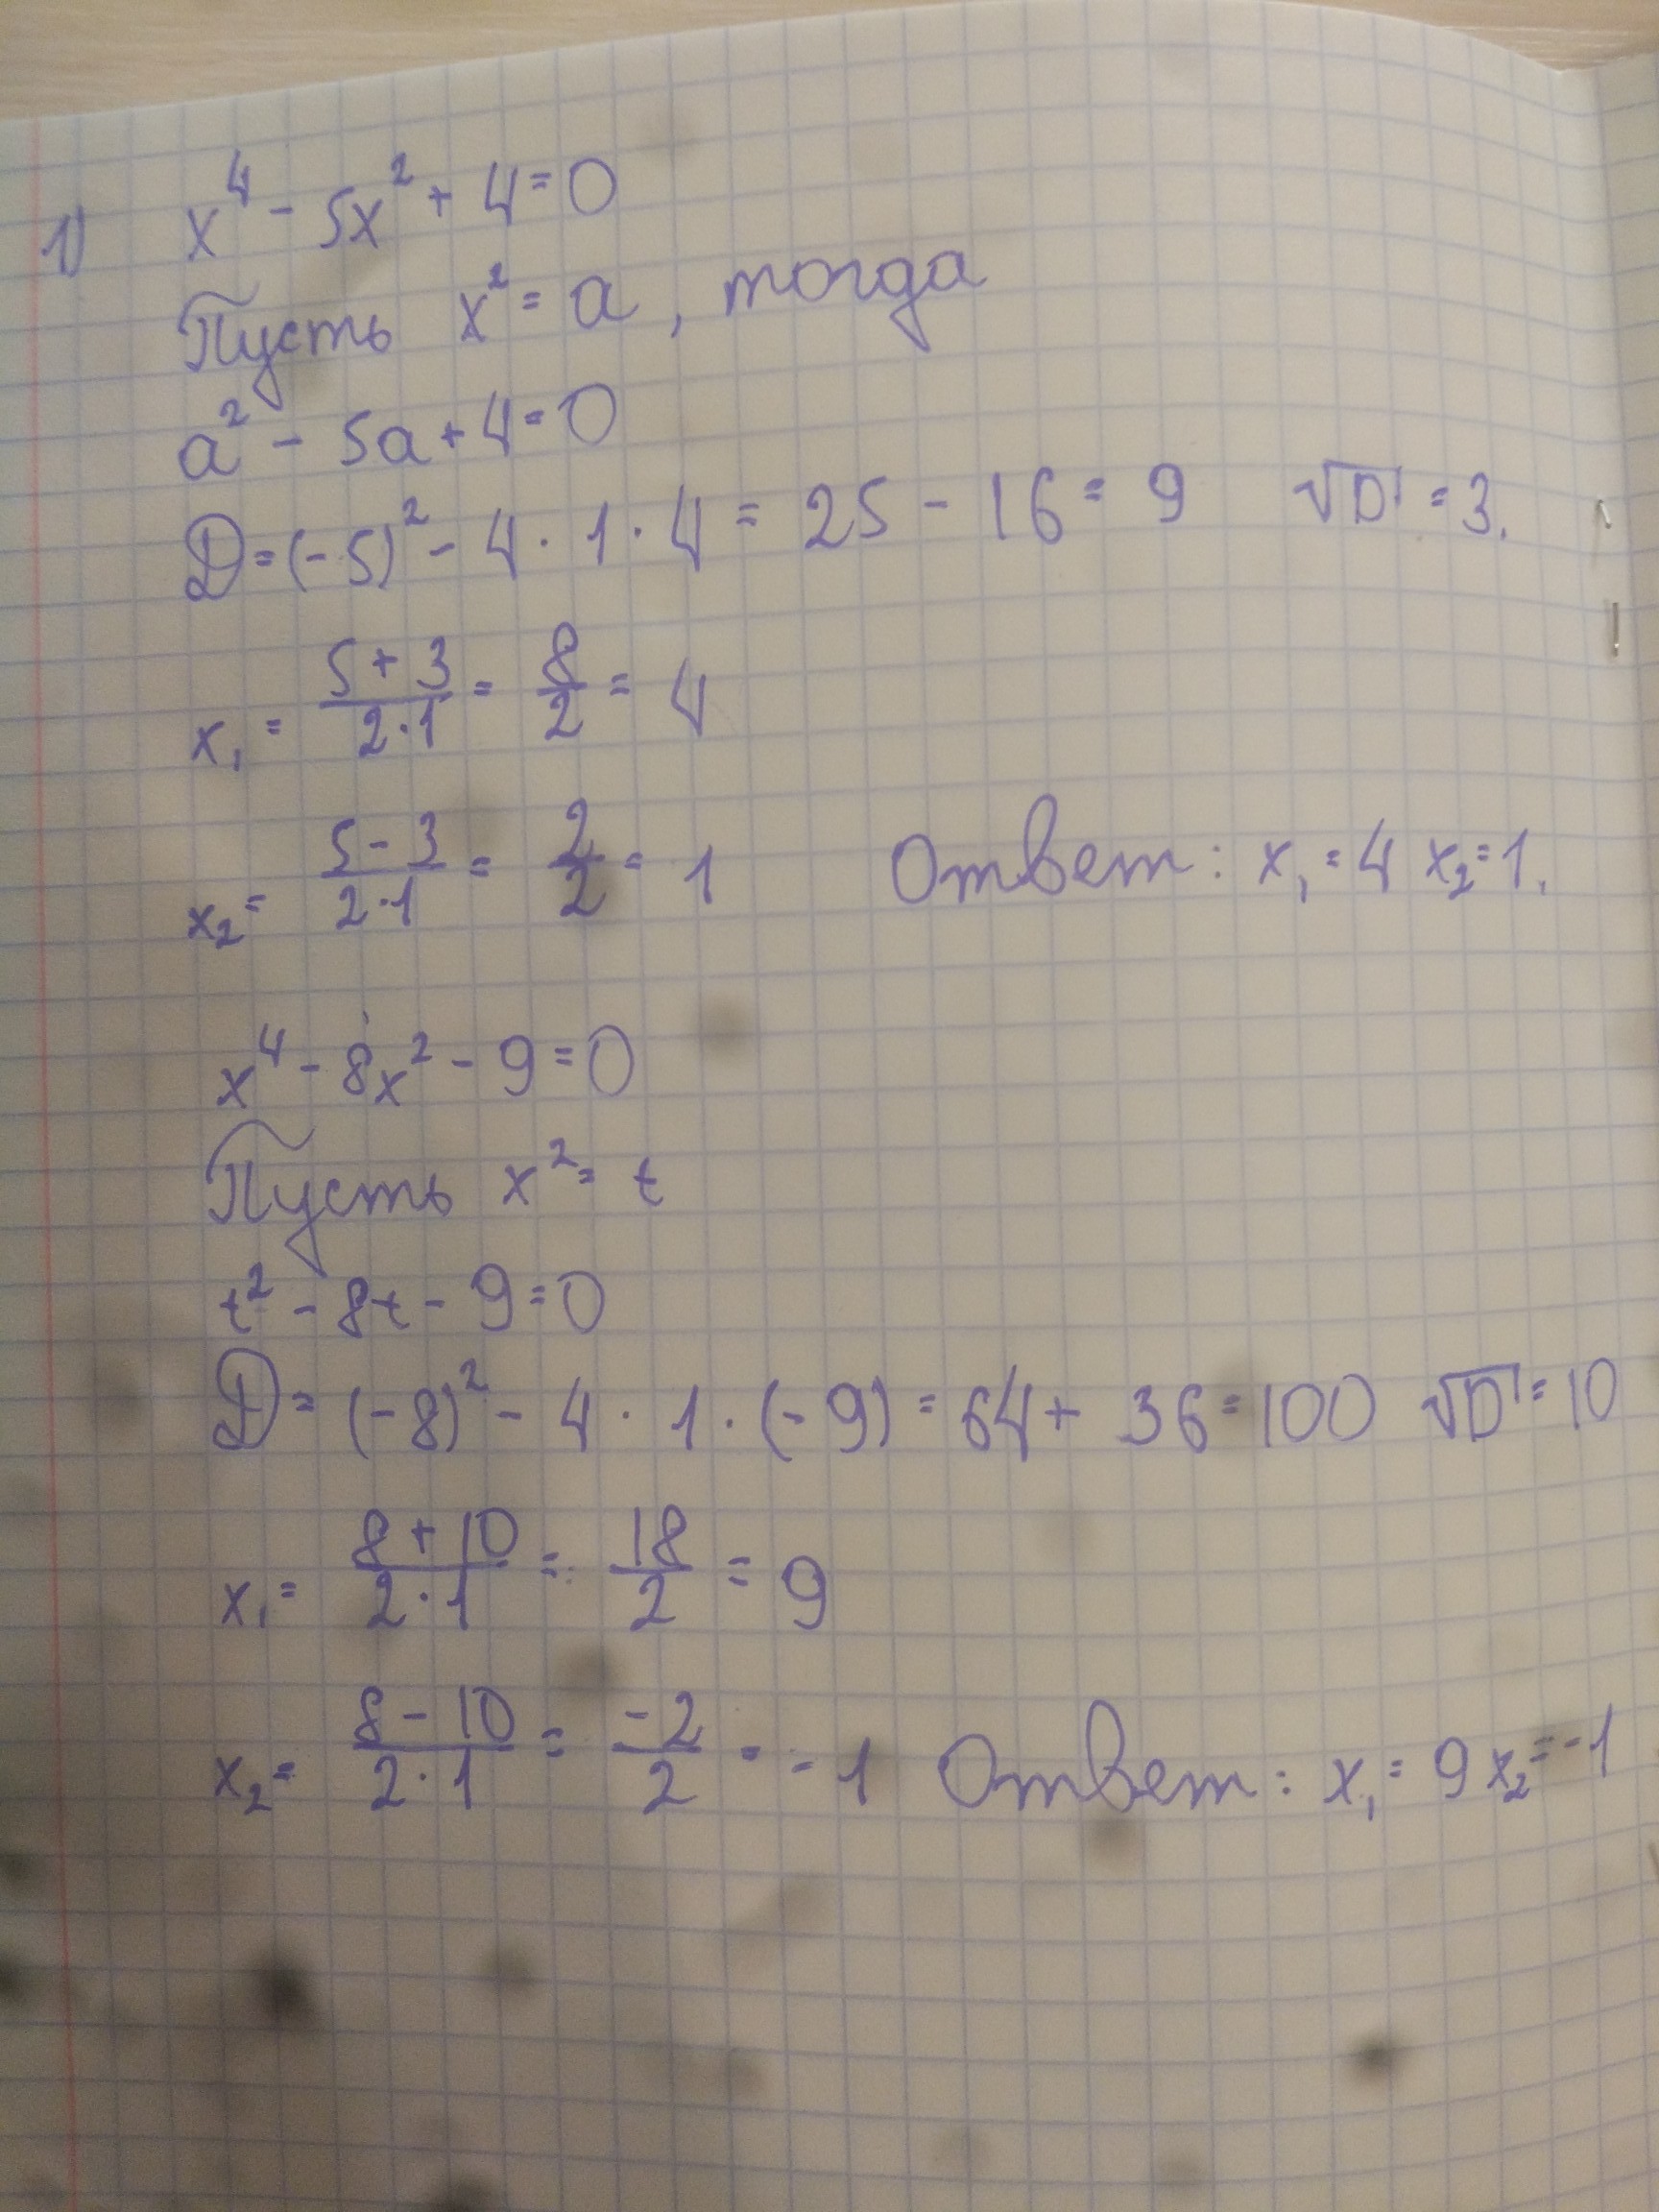 1) x⁴ - 5x² + 4 = 0
Пусть x² = a, тогда
a² - 5a + 4 = 0
D = (-5)² - 4 · 1 · 4 = 25 - 16 = 9 √D = 3.
x₁ = (5 + 3)/(2·1) = 8/2 = 4
x₂ = (5 - 3)/(2·1) = 2/2 = 1 Ответ: x₁ = 4 x₂ = 1.
x⁴ - 8x² - 9 = 0
Пусть x² = t
t² - 8t - 9 = 0
D = (-8)² - 4 · 1 · (-9) = 64 + 36 = 100 √D = 10
x₁ = (8 + 10)/(2·1) = 18/2 = 9
x₂ = (8 - 10)/(2·1) = -2/2 = -1 Ответ: x₁ = 9 x₂ = -1